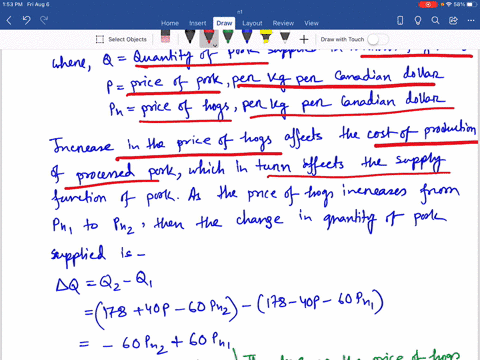 1:53 PM Fri Aug 6
58%
Home Insert Draw Layout Review View
Select Objects
Draw with Touch
where, Q = Quantity of pork supplied in
P = price of pork, per kg per Canadian dollar
Ph = price of hogs, per kg per Canadian dollar
Increase in the price of hogs affects the cost of production
of processed pork, which in turn affects the supply
function of pork. As the price of hogs increases from
Ph1 to Ph2, then the change in quantity of pork
supplied is -
ΔQ = Q2 - Q1
= (178 + 40P - 60Ph2) - (178 - 40P - 60Ph1)
= - 60Ph2 + 60Ph1
the price of hogs